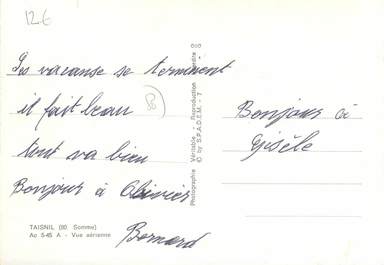 12.6
Les vacanse se terminent
il fait beau
80
tout va bien
Bonjour à Olivier
Bernard
Bonjour à
Gisèle
TAISNIL (80 Somme)
Ao 5-45 A - Vue aérienne
Photographie Véritable - Reproduction Interdite
© by S.P.A.D.E.M. - 7